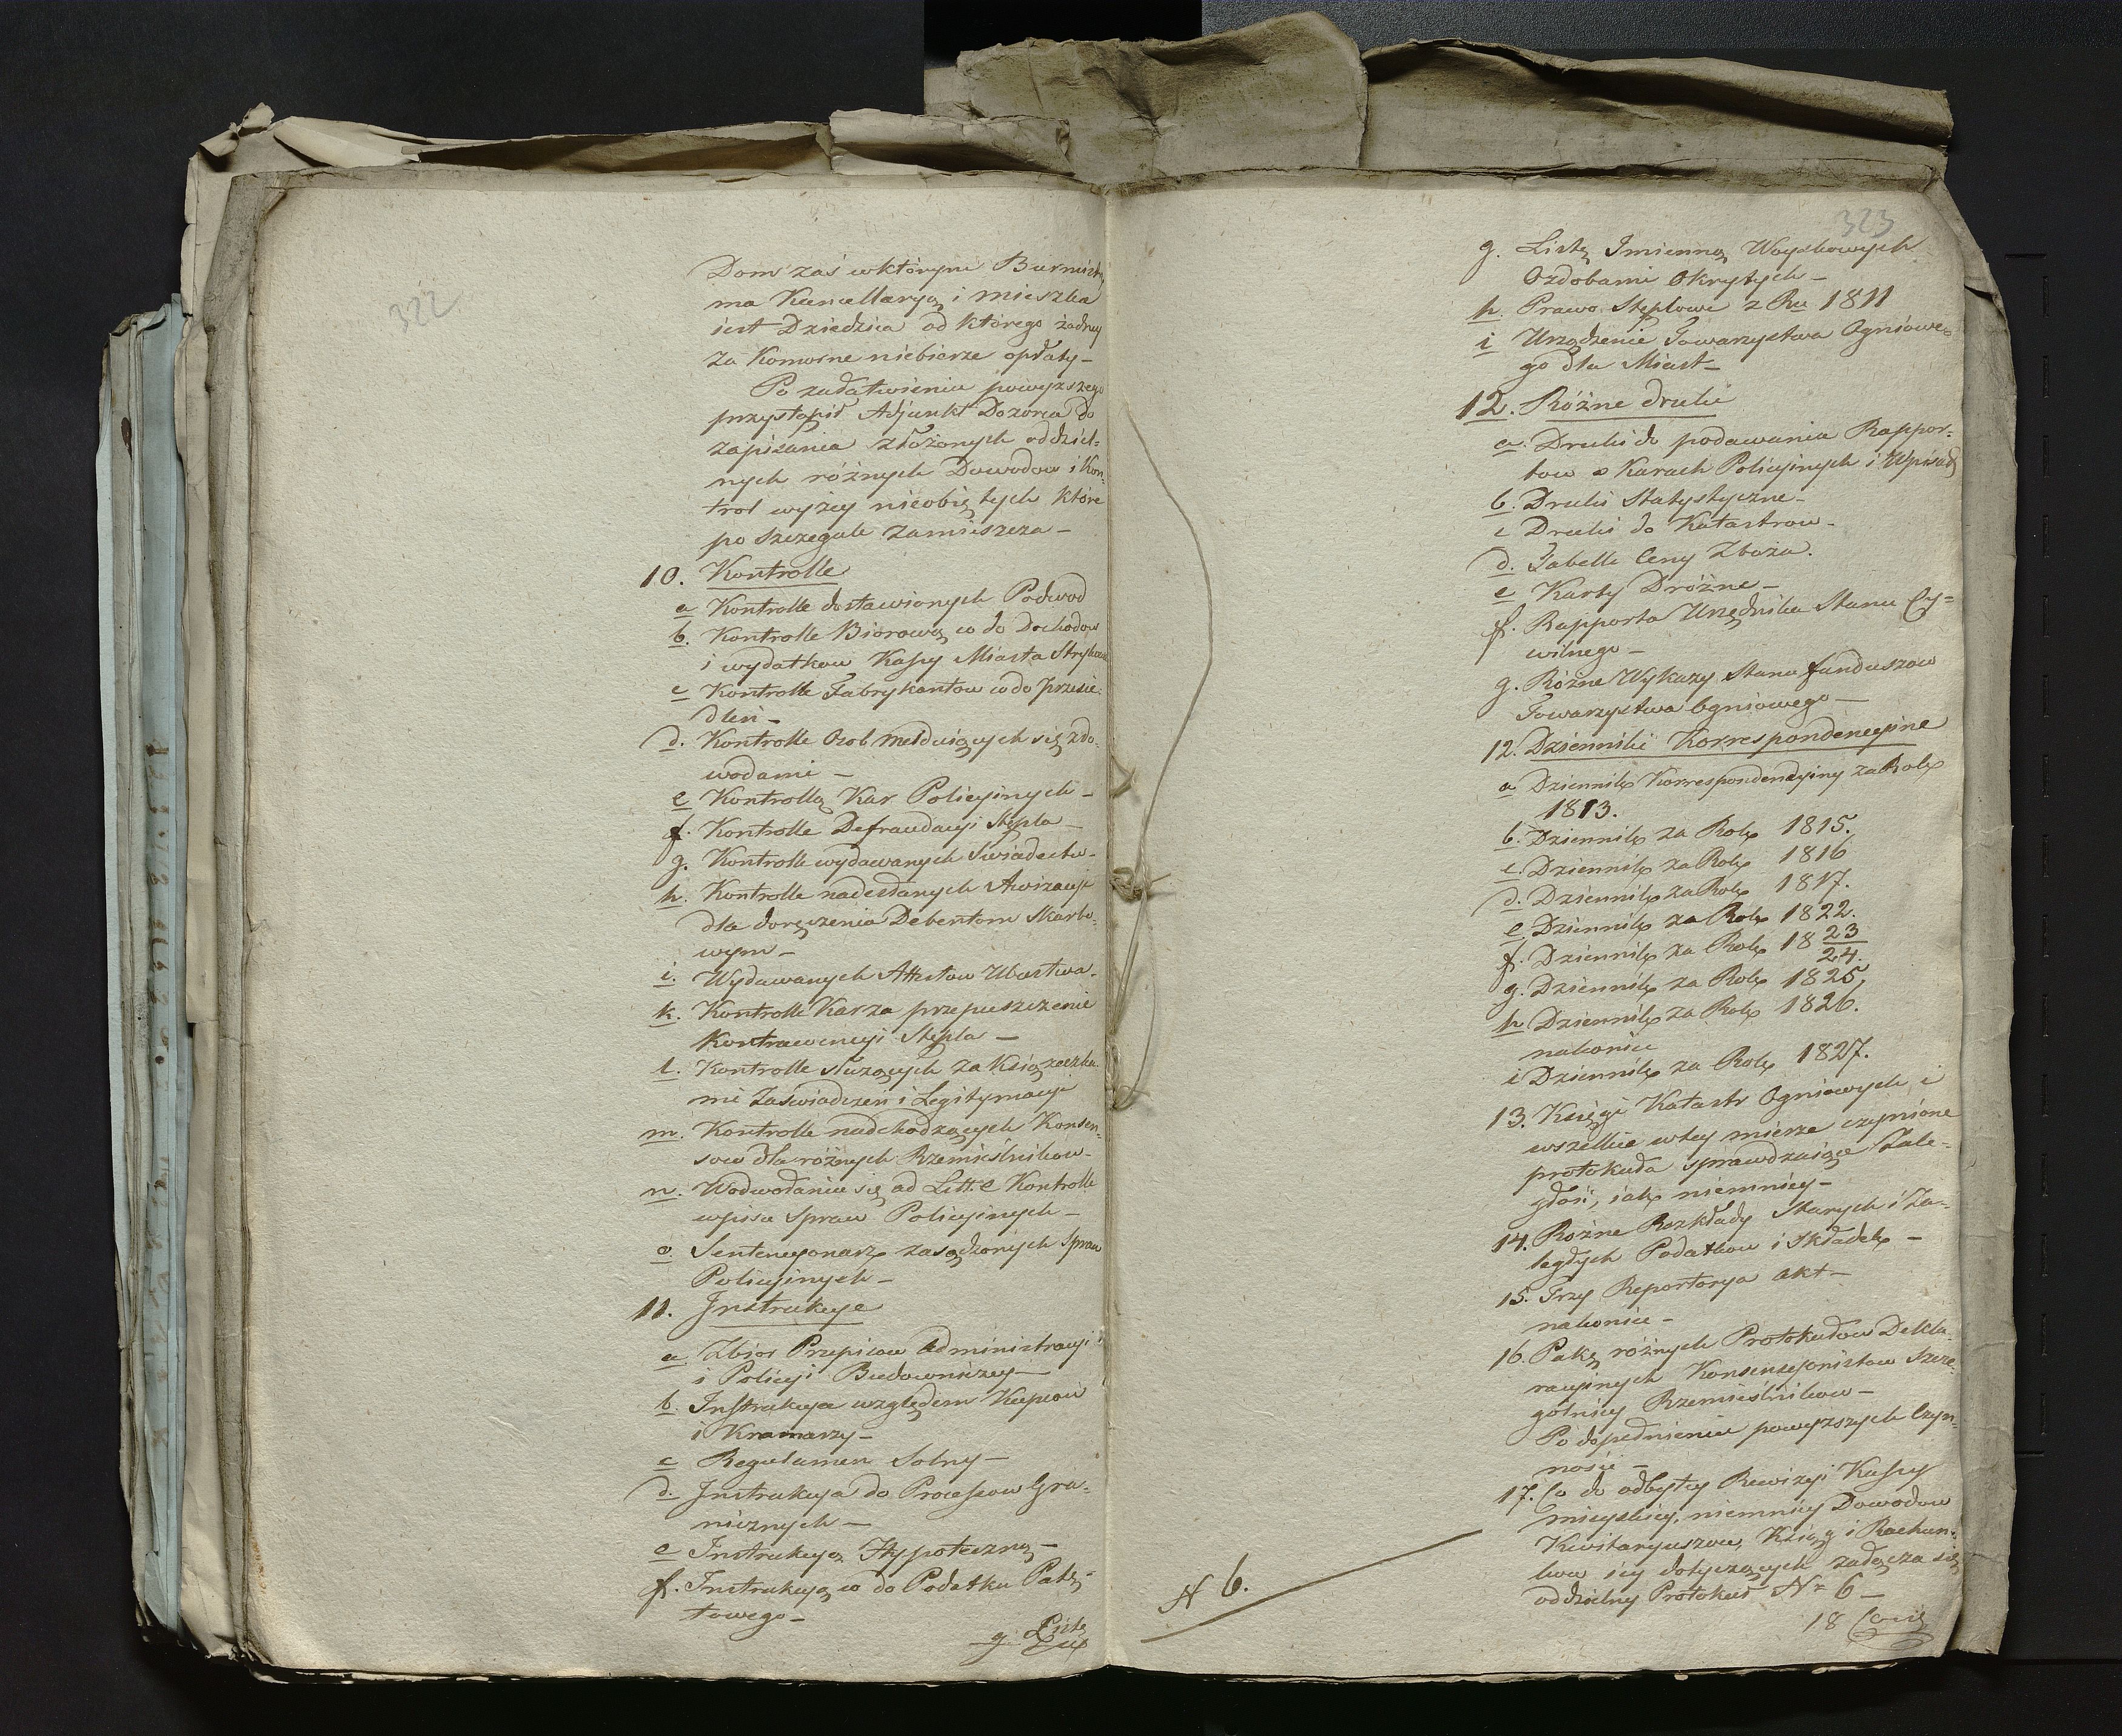 322
Dom zaś w którym Burmistrz
ma Kancellaryą i mieszka
iest Dziedzica od którego żadney
za Komorne niebierze opłaty –
Po załatwieniu powyższego
przystąpił Adjunkt Dozorca do
zapisania złożonych oddziel-
nych różnych Dowodow i Kon-
trol wyżey nieobiętych które
po szczegule zamieszcza –
10. Kontrolle
a Kontrolle dostawionych Podwod
b. Kontrolle Biorową co do Dochodow
i wydatkow Kassy Miasta Strykowa
c Kontrolle Fabrykantow co do przesie-
dleń –
d. Kontrolle Osob meldujących się z do-
wodami –
e Kontrollą Kar Policyinych –
f. Kontrolle Defraudacyi Stępla –
g. Kontrolle wydawanych Swiadectw –
h. Kontrolle nadesłanych Awizacyi
dla doręczenia Debentom Skarbo-
wym –
i. Wydawanych Attestow Ubostwa –
k. Kontrolle Kar za przepuszczenie
Kontrawencyi Stępla –
l. Kontrolle służących za Książeczka-
mi Zaświadczeń i Legitymacyi
m. Kontrolle nadchodzących Konsen-
sow dla różnych Rzemieślnikow –
n. W odwołaniu się ad Litt. e Kontrolle
wpisu Spraw Policyinych –
o. Sentencyonarz zasądzonych Spraw
Policyinych –
11. Instrukcye
a Zbior Przepisow Administracyi
i Policyi Budowniczey –
b. Instrukcya względem Kupcow
i Kramarzy –
c Regulamen Solny –
d. Instrukcya do Processow Gra-
nicznych –
e Instrukcyą Hypoteczną –
f. Instrukcyą co do Podatku Paten-
towego –
g. Listę
323
g. Listę Imienną Woyskowych
Ozdobami Okrytych –
h. Prawo Stęplowe z Ru 1811
i Urządzenie Towarzystwa Ogniowe-
go dla Miast –
12. Różne druki
a. Druki do podawania Rappor-
tow o Karach Policyinych i Wpisach
b. Druki Statystyczne –
c Druki do Katastrow –
d. Tabelle Ceny Zboża.
e Karty Drożne –
f. Rapporta Urzędnika Stanu Cy-
wilnego –
g. Różne Wykazy Stanu funduszow
Towarzystwa Ogniowego –
12. Dzienniki Korrespondencyine
a Dziennik Korrespondencyiny za Rok
1813.
b. Dziennik za Rok 1815.
c. Dziennik za Rok 1816
d. Dziennik za Rok 1817.
e Dziennik za Rok 1822.
f. Dziennik za Rok 18 23/24.
g. Dziennik za Rok 1825,
h Dziennik za Rok 1826.
nakoniec
i Dziennik za Rok 1827.
13. Księgi Katastr Ogniowych i
wszelkie w tey mierze czynione
protokuła sprawdzaiące Zale-
głość, iak niemniey –
14. Rożne Rozkłady Starych i Za-
ległych Podatkow i Składek –
15. Trzy Reportorya Akt –
nakoniec –
16. Pakę różnych Protokułow Dekla-
racyinych Konsensyonistow Szcze-
gólniey Rzemieślnikow –
Po dopełnieniu powyższych Czyn-
nosci –
17. Co do odbytey Rewizyi Kassy
mieyskiey, niemniey Dowodow
Kwitaryuszow, Ksiąg i Rachun-
kow iey dotyczących załącza się
oddzielny Protokuł Nr 6 –
N 6.
18 Co się